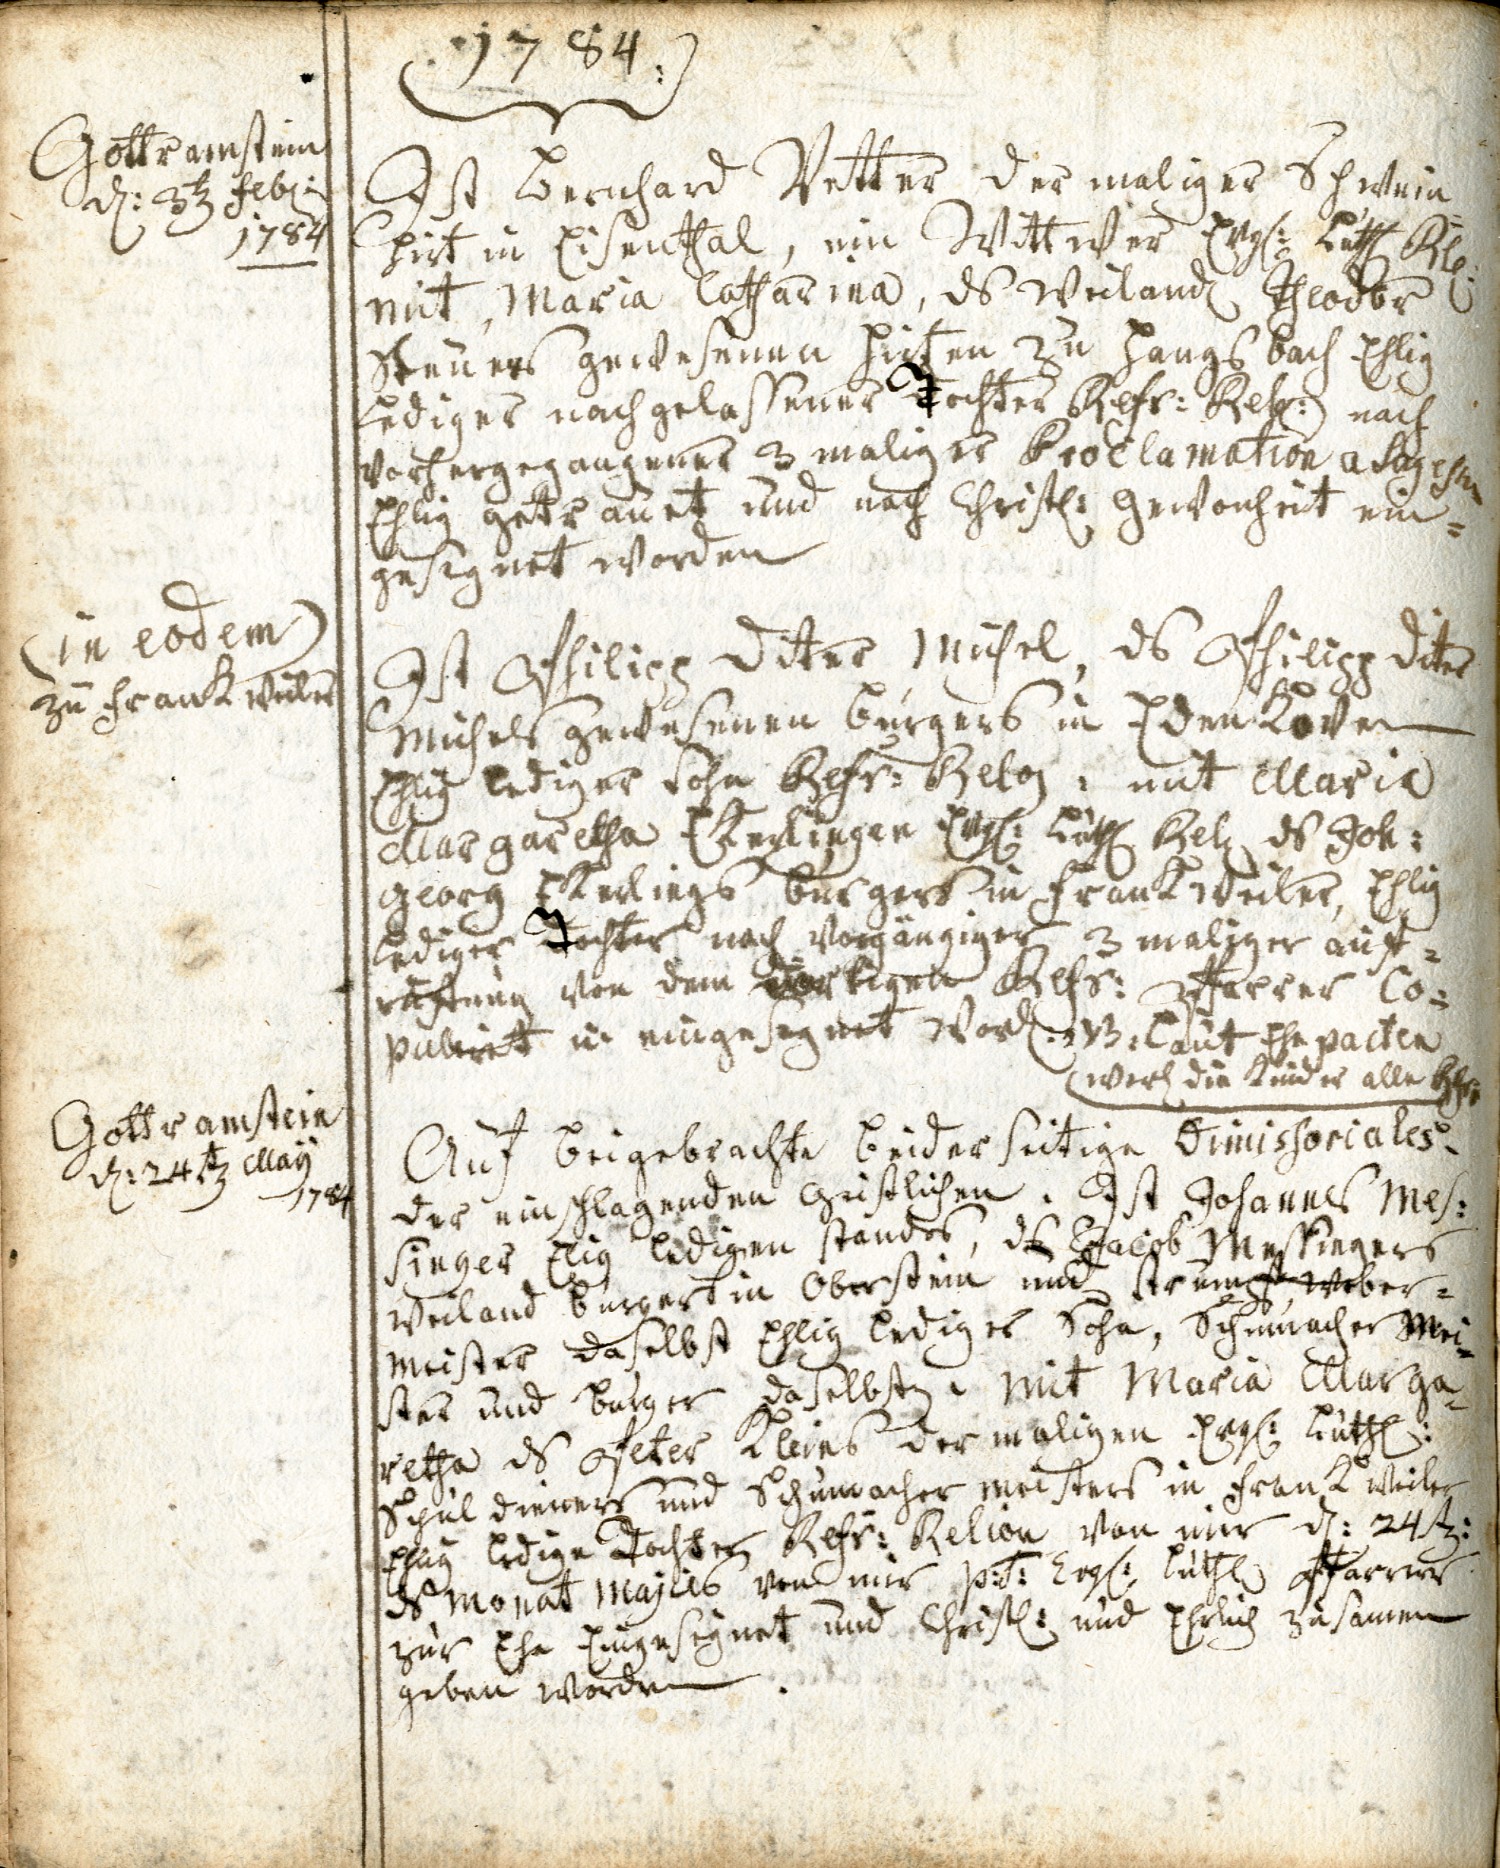 1784:
Gottramstein
d: 3t Feb:
1784
Ist Bernhard Vetter der maliger Schwein=
hirt in Eisenthal, ein Wittwer Evgl: Luth Rlg:
mit, Maria Catharina, ds weiland Theodor
Steuers gewesenen Hirten zu Hangsbach Ehlig
lediger nachgelassener Tochter Refr: Relg: nach
vorhergegangener 3 maliger Proclamation
Ehlig getrauet und nach Christl: gewonheit ein=
gesegnet worden
(in eodem)
zu Franckweiler
Ist Philipp Diter Michel, ds Philipp Diter
Michels gewesenen burgers in Edenkoven
Ehlig lediger Sohn Refr: Relig: mit Maria
Margaretha Ekerlingen Evgl: Luth Relg ds Joh:
Georg Ekerlings burgers in Franckweiler, Ehlig
lediger Tochter nach vorgängiger 3 maliger auff=
ruffung von dem dortigen Refr: Pfarrer Co=
pulirt u eingesegnet word: NB: laut Ehe pacten
werd die Kinder alle Refr:
Gottramstein
d: 24t May
1784
Auf beigebrachte beiderseitige Dimissoriales
der einschlagenden Geistlichen. Ist Johannes Mes=
singer Elig ledigen standes, ds Jacob Messingers
weiland burgers in Oberstein und strumpf weber=
meister daselbst Ehlig lediger Sohn, Schumacher Mei=
ster und burger daselbst. mit Maria Marga=
retha ds Peter Kleins der maligen Evgl: Luthl:
Schul dieners und Schumacher meisters in Franckweiler
Ehlig ledige Tochter Refr: Relion von mir d: 24t:
ds Monat Majus von mir p:t: Evgl: Luthl Pfarrer
zur Ehe Eingesegnet und Christl: und Ehrlich zusamen
geben worden.